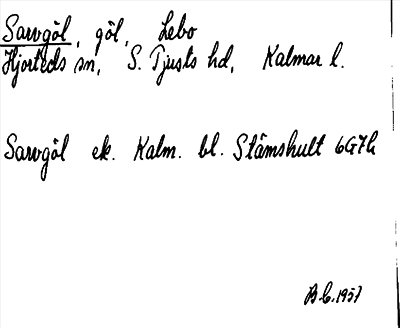 Sarvgöl, göl, Lebo
Hjorteds sn, S. Tjusts hd, Kalmar l.
Sarvgöl ek. Kalm. bl. Stämshult 6G7h
1957